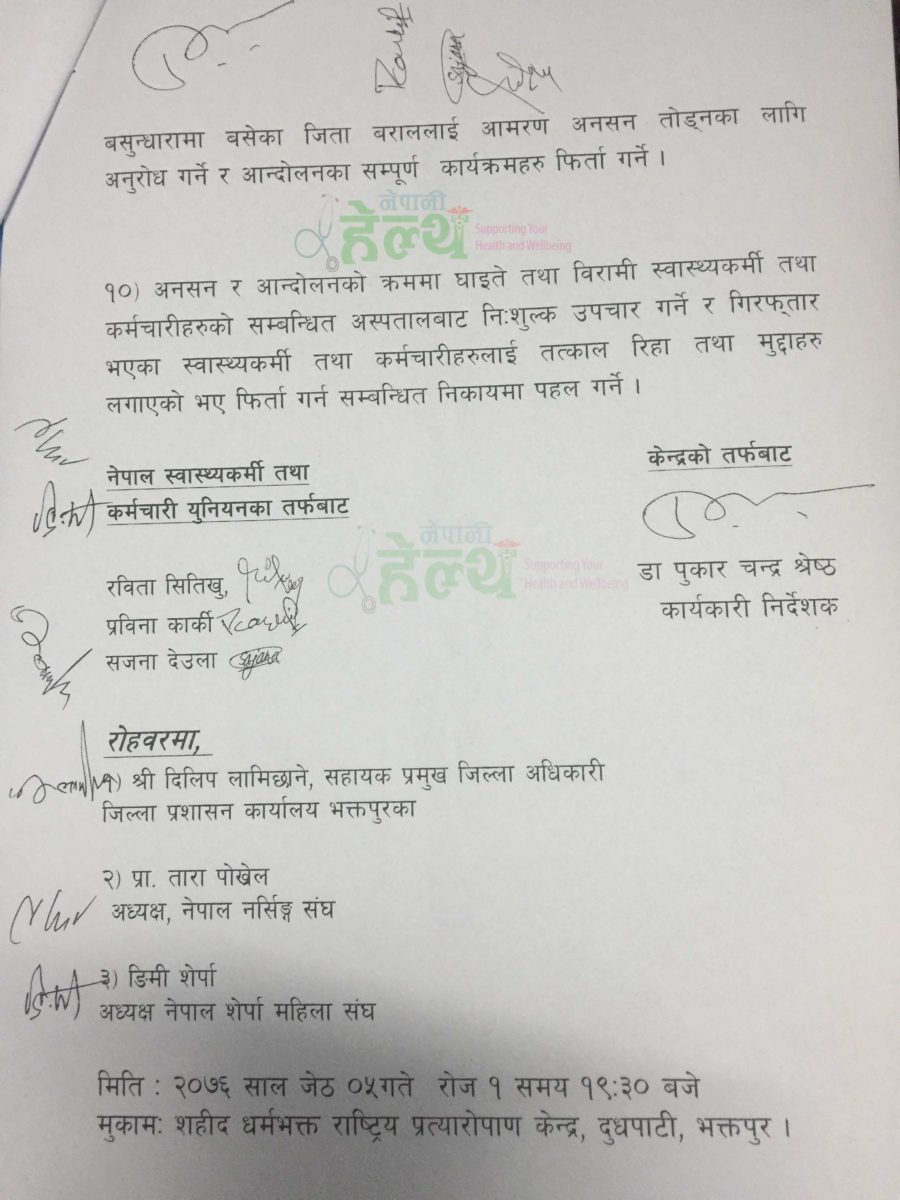 बसुन्धारामा बसेका जिता बराललाई आमरण अनसन तोड्नका लागि
अनुरोध गर्ने र आन्दोलनका सम्पूर्ण कार्यक्रमहरु फिर्ता गर्ने ।
नेपाली
हेल्थ
Supporting Your
Health and Wellbeing
१०) अनसन र आन्दोलनको क्रममा घाइते तथा विरामी स्वास्थ्यकर्मी तथा
कर्मचारीहरुको सम्बन्धित अस्पतालबाट निःशुल्क उपचार गर्ने र गिरफ्तार
भएका स्वास्थ्यकर्मी तथा कर्मचारीहरुलाई तत्काल रिहा तथा मुद्दाहरु
लगाएको भए फिर्ता गर्न सम्बन्धित निकायमा पहल गर्ने ।
नेपाल स्वास्थ्यकर्मी तथा
कर्मचारी युनियनका तर्फबाट
केन्द्रको तर्फबाट
नेपाली
हेल्थ
Supporting Your
Health and Wellbeing
रविता सितिखु,
प्रविना कार्की
सजना देउला
डा पुकार चन्द्र श्रेष्ठ
कार्यकारी निर्देशक
रोहवरमा,
१) श्री दिलिप लामिछाने, सहायक प्रमुख जिल्ला अधिकारी
जिल्ला प्रशासन कार्यालय भक्तपुरका
२) प्रा. तारा पोखेल
अध्यक्ष, नेपाल नर्सिङ्ग संघ
३) ङिमी शेर्पा
अध्यक्ष नेपाल शेर्पा महिला संघ
मिति : २०७६ साल जेठ ०५गते रोज १ समय १९:३० बजे
मुकामः शहीद धर्मभक्त राष्ट्रिय प्रत्यारोपाण केन्द्र, दुधपाटी, भक्तपुर ।